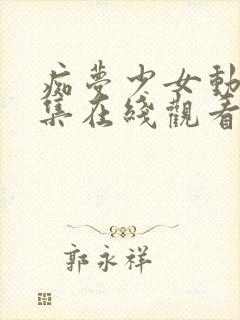 痴夢少女動
集在綫觀看
郭永祥